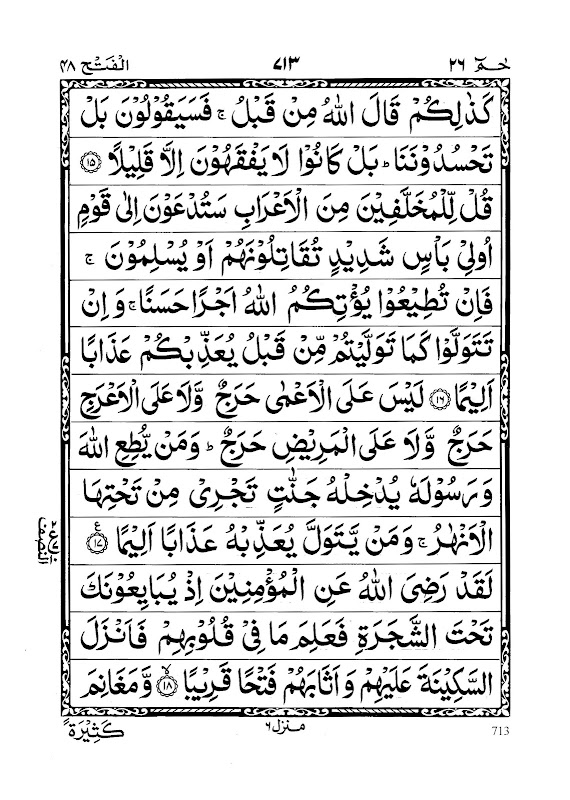 حٰمٓ ٢٦ ٧١٣ الْفَتْح ٤٨
كَذٰلِكُمْ قَالَ اللّٰهُ مِنْ قَبْلُ ۚ فَسَيَقُوْلُوْنَ بَلْ
تَحْسُدُوْنَنَا ؕ بَلْ كَانُوْا لَا يَفْقَهُوْنَ اِلَّا قَلِيْلًا ﴿۱۵﴾
قُلْ لِّلْمُخَلَّفِيْنَ مِنَ الْاَعْرَابِ سَتُدْعَوْنَ اِلٰى قَوْمٍ
اُولِيْ بَاْسٍ شَدِيْدٍ تُقَاتِلُوْنَهُمْ اَوْ يُسْلِمُوْنَ ۚ
فَاِنْ تُطِيْعُوْا يُؤْتِكُمُ اللّٰهُ اَجْرًا حَسَنًا ۚ وَ اِنْ
تَتَوَلَّوْا كَمَا تَوَلَّيْتُمْ مِّنْ قَبْلُ يُعَذِّبْكُمْ عَذَابًا
اَلِيْمًا ﴿۱۶﴾ لَيْسَ عَلَى الْاَعْمٰى حَرَجٌ وَّلَا عَلَى الْاَعْرَجِ
حَرَجٌ وَّلَا عَلَى الْمَرِيْضِ حَرَجٌ ؕ وَمَنْ يُّطِعِ اللّٰهَ
وَ رَسُوْلَهٗ يُدْخِلْهُ جَنّٰتٍ تَجْرِيْ مِنْ تَحْتِهَا
الْاَنْهٰرُ ۚ وَمَنْ يَّتَوَلَّ يُعَذِّبْهُ عَذَابًا اَلِيْمًا ﴿۱۷﴾ ع
لَقَدْ رَضِيَ اللّٰهُ عَنِ الْمُؤْمِنِيْنَ اِذْ يُبَايِعُوْنَكَ
تَحْتَ الشَّجَرَةِ فَعَلِمَ مَا فِيْ قُلُوْبِهِمْ فَاَنْزَلَ
السَّكِيْنَةَ عَلَيْهِمْ وَ اَثَابَهُمْ فَتْحًا قَرِيْبًا ﴿۱۸﴾ۙ وَّ مَغَانِمَ
النصف
كَثِيْرَةً منزل ٦ 713